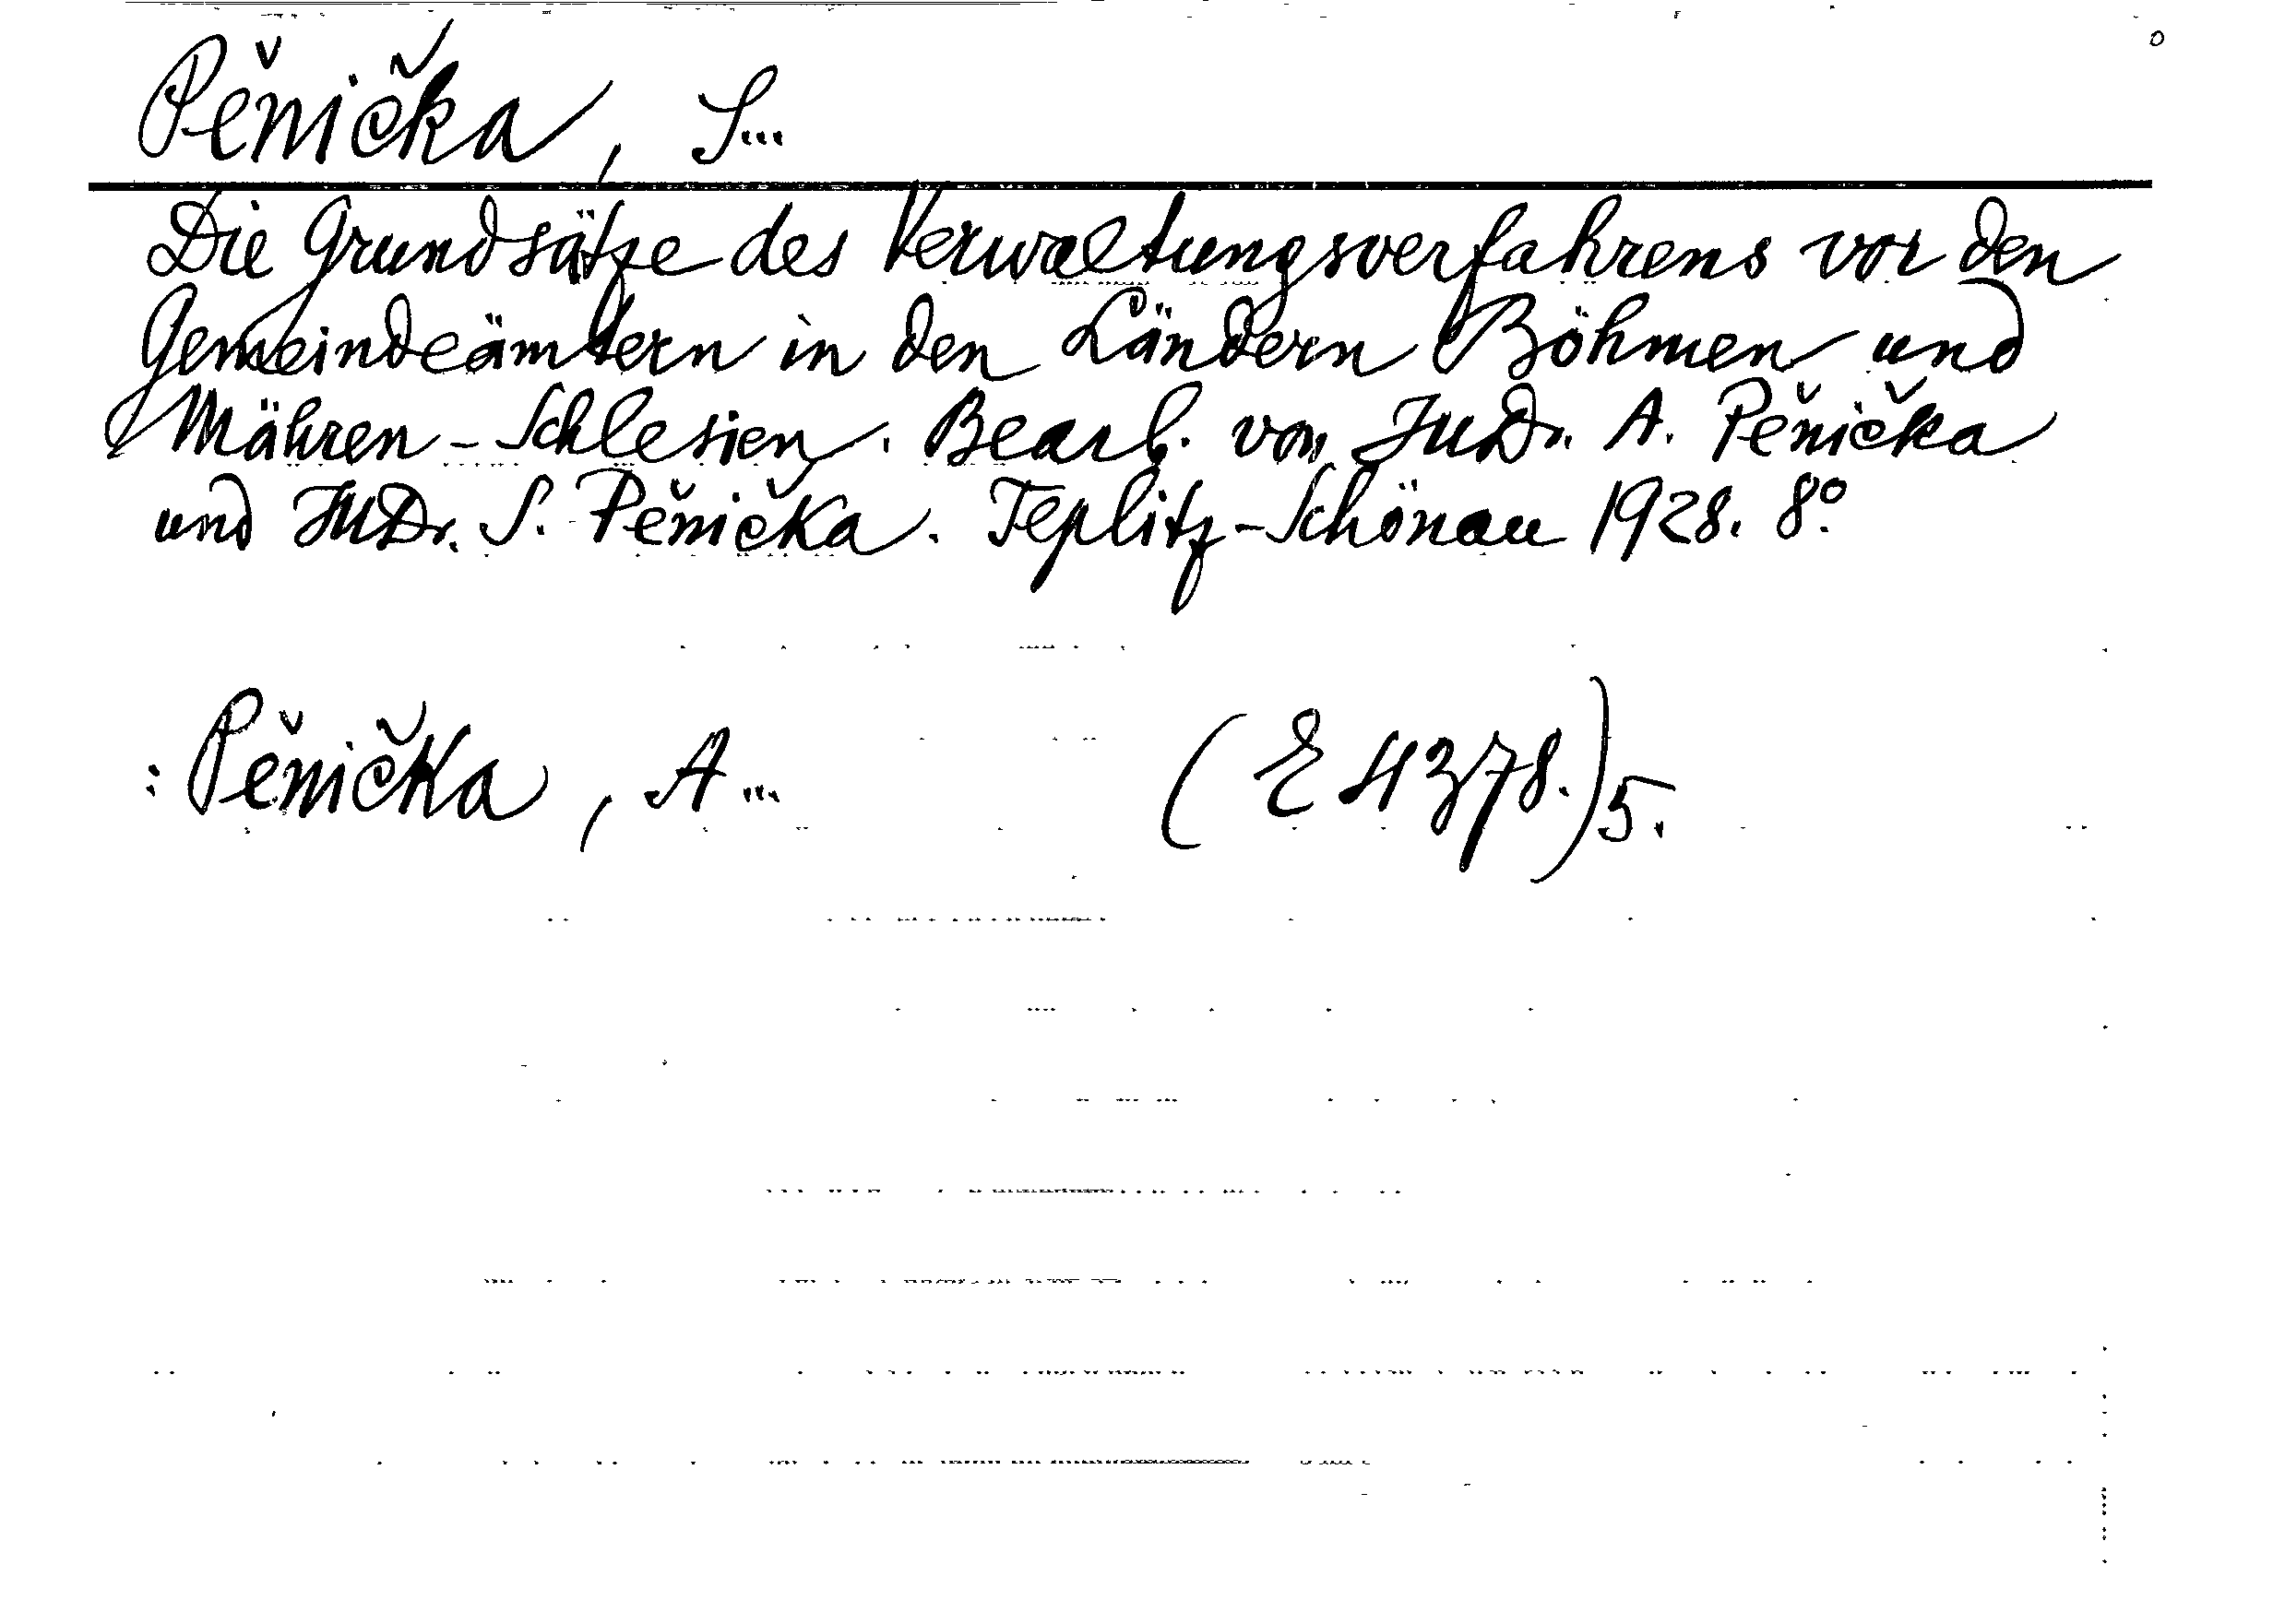 Pěnička, S...
Die Grundsätze des Verwaltungsverfahrens vor den
Gemeindeämtern in den Ländern Böhmen und
Mähren-Schlesien. Bearb. von JUDr. A. Pěnička
und JUDr. S. Pěnička. Teplitz-Schönau 1928. 8°.
: Pěnička, A... (E 4378.)5.